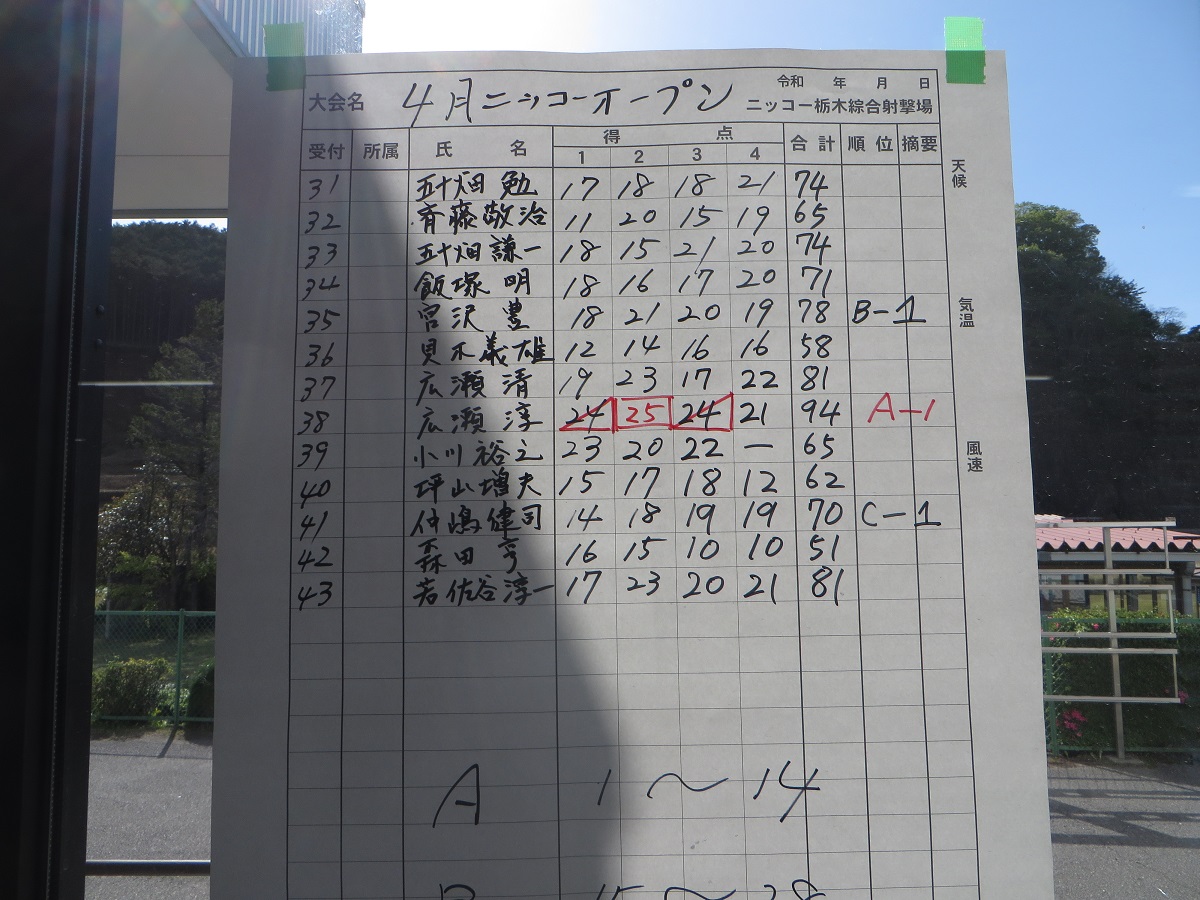 令和 年 月 日
大会名 4月ニッコーオープン ニッコー栃木綜合射撃場
受付 所属 氏名 得点 合計 順位 摘要
1 2 3 4
31 五十畑 勉 17 18 18 21 74
32 斉藤敬治 11 20 15 19 65
33 五十畑謙一 18 15 21 20 74
34 飯塚 明 18 16 17 20 71
35 宮沢 豊 18 21 20 19 78 B-1
36 貝木義雄 12 14 16 16 58
37 広瀬 清 19 23 17 22 81
38 広瀬 淳 24 25 24 21 94 A-1
39 小川裕之 23 20 22 — 65
40 坪山増夫 15 17 18 12 62
41 仲嶋健司 14 18 19 19 70 C-1
42 森田 亨 16 15 10 10 51
43 若佐谷淳一 17 23 20 21 81
A 1〜14
B 15〜28
天候
気温
風速